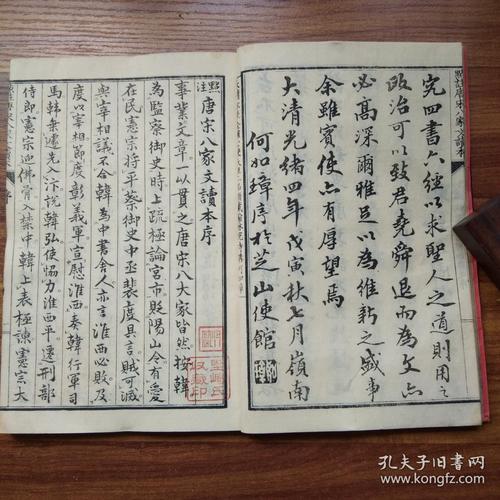 究四書六經以求聖人之道則用之
政治可以致君堯舜退而為文亦
必高深爾雅足以為維新之盛事
余雖賓使亦有厚望焉
大清光緒四年戊寅秋七月嶺南
何如璋序於芝山使館
點註唐宋八家文讀本序
事業文章一以貫之唐宋八大家皆然按韓
為監察御史時上疏極論宮市貶陽山令有愛
在民憲宗將平蔡御史中丞裴度具言賊可滅
與宰相議不合韓為中書舍人亦言淮西必敗及
度以宰相節度彰義軍宣慰淮西奏韓行軍司
馬韓乘遽先入汴說韓弘使恊力淮西平遷刑部
侍郎憲宗迎佛骨入禁中韓上表極諫憲宗大
孔夫子旧书网
www.kongfz.com